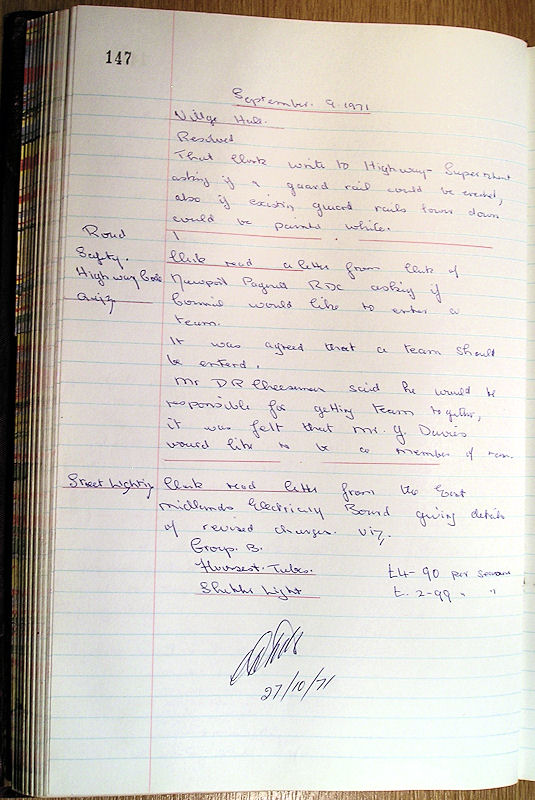 147
September. 9. 1971
Village Hall.
Resolved
That Clerk write to Highway-
asking if a guard rail could be erected,
also if existing guard rails lower down
could be painted white.
Road
Safety.
Highway Code
Quiz
Clerk read a letter from Clerk of
Newport Pagnell RDC asking if
would like to enter a
team.
It was agreed that a team should
be entered.
Mr DR Cheeseman said he would be
responsible for getting team together,
it was felt that Mr. G. Davies
would like to be a member of team.
Street Lighting
Clerk read letter from the East
Midlands Electricity Board giving details
of revised charges. Viz,
Group. B.
Tubes. £4-90 per
Light £. 2-99 " "
27/10/71